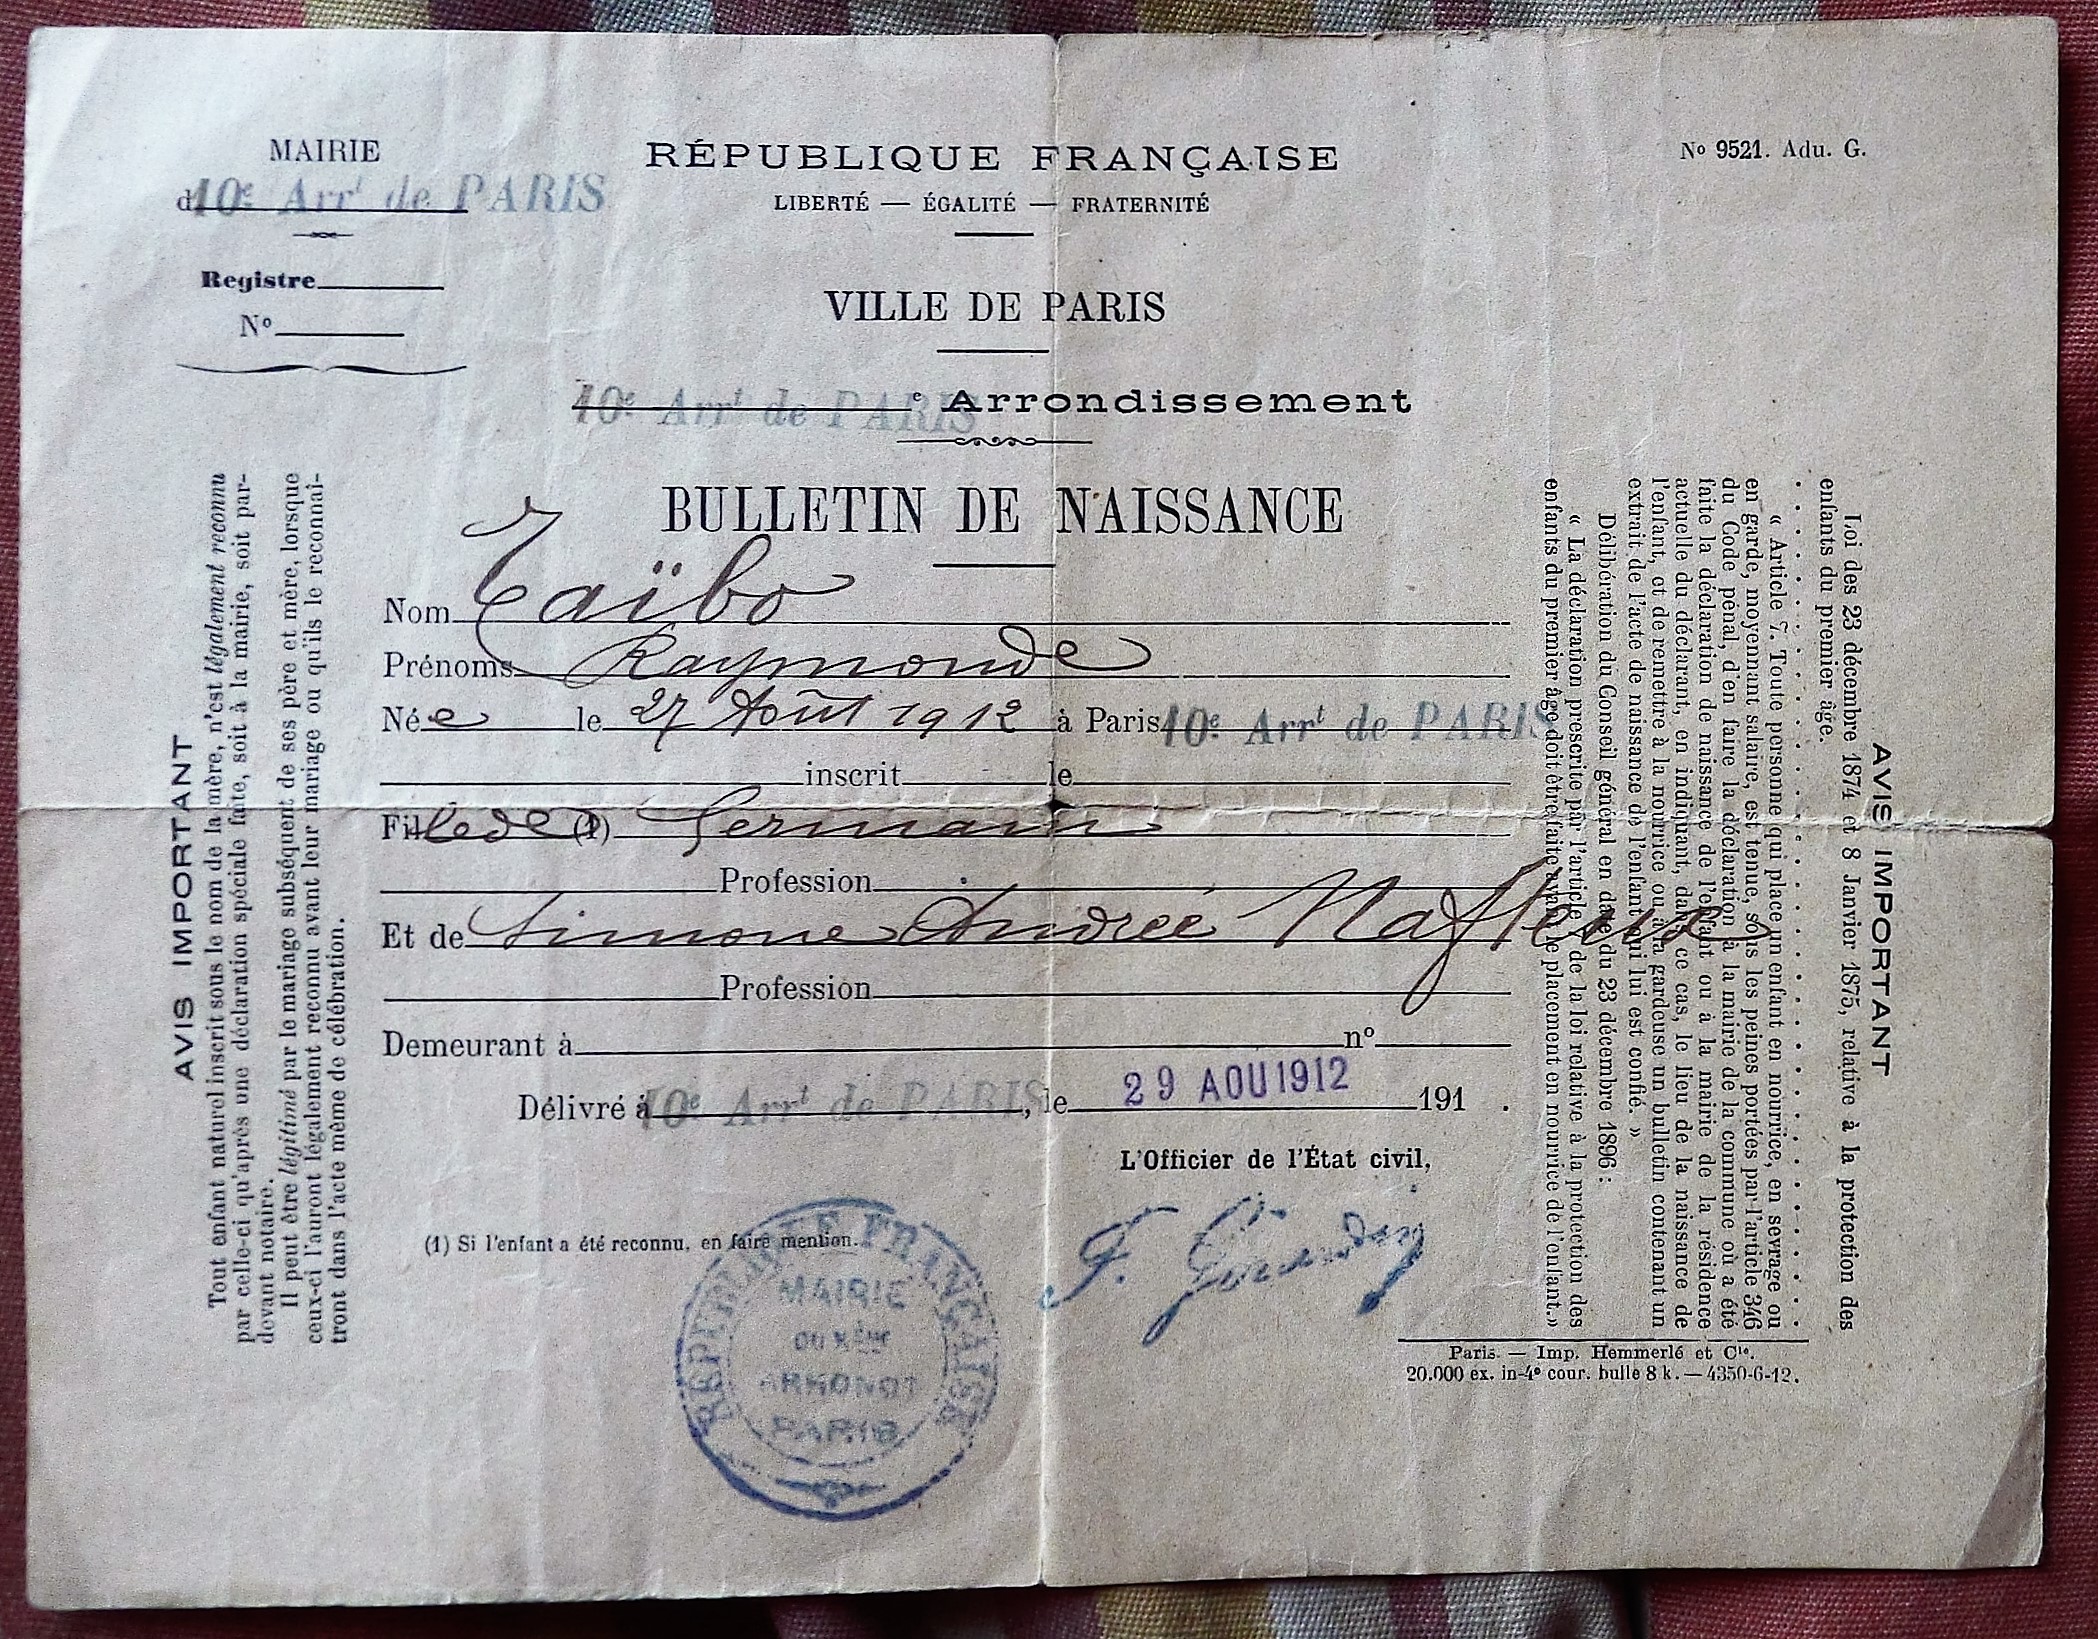 MAIRIE
d 10e Arrt de PARIS
Registre
No
RÉPUBLIQUE FRANÇAISE
LIBERTÉ — ÉGALITÉ — FRATERNITÉ
No 9521. Adu. G.
VILLE DE PARIS
10e Arrt de PARIS e Arrondissement
BULLETIN DE NAISSANCE
Nom Taïbo
Prénoms Raymonde
Née le 27 Août 1912 à Paris 10e Arrt de PARIS
inscrit le
Fille de (1) Germain
Profession
Et de Simone Andrée
Profession
Demeurant à nº
Délivré à 10e Arrt de PARIS, le 29 AOU 1912 191 .
L'Officier de l'État civil,
(1) Si l'enfant a été reconnu, en faire mention.
RÉPUBLIQUE FRANÇAISE
MAIRIE
DU Xème
ARRONDT
PARIS
AVIS IMPORTANT
Tout enfant naturel inscrit sous le nom de la mère, n'est légalement reconnu
par celle-ci qu'après une déclaration spéciale faite, soit à la mairie, soit par-
devant notaire.
Il peut être légitimé par le mariage subséquent de ses père et mère, lorsque
ceux-ci l'auront légalement reconnu avant leur mariage ou qu'ils le reconnaî-
tront dans l'acte même de célébration.
AVIS IMPORTANT
Loi des 23 décembre 1874 et 8 Janvier 1875, relative à la protection des
enfants du premier âge.
« Article 7. Toute personne qui place un enfant en nourrice, en sevrage ou
en garde, moyennant salaire, est tenue, sous les peines portées par l'article 346
du Code pénal, d'en faire la déclaration à la mairie de la commune où a été
faite la déclaration de naissance de l'enfant ou à la mairie de la résidence
actuelle du déclarant, en indiquant, dans ce cas, le lieu de la naissance de
l'enfant, et de remettre à la nourrice ou à la gardeuse un bulletin contenant un
extrait de l'acte de naissance de l'enfant qui lui est confié. »
Délibération du Conseil général en date du 23 décembre 1896 :
« La déclaration prescrite par l'article de la loi relative à la protection des
enfants du premier âge doit être faite avant le placement en nourrice de l'enfant. »
Paris. — Imp. Hemmerlé et Cie.
20.000 ex. in-4º cour. bulle 8 k. — 4350-6-12.